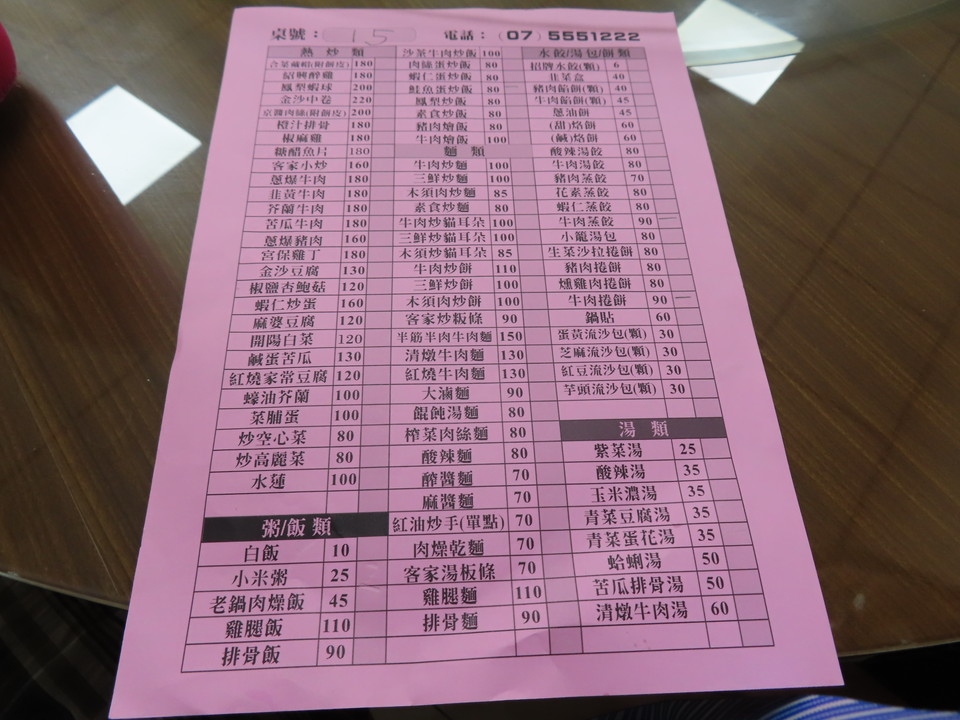 桌號： 15 電話：（07）5551222
熱炒類
合菜戴帽(附餅皮) 180
紹興醉雞 180
鳳梨蝦球 200
金沙中卷 220
京醬肉絲(附餅皮) 200
橙汁排骨 180
椒麻雞 180
糖醋魚片 180
客家小炒 160
蔥爆牛肉 180
韭黃牛肉 180
芥蘭牛肉 180
苦瓜牛肉 180
蔥爆豬肉 160
宮保雞丁 180
金沙豆腐 130
椒鹽杏鮑菇 120
蝦仁炒蛋 160
麻婆豆腐 120
開陽白菜 120
鹹蛋苦瓜 130
紅燒家常豆腐 120
蠔油芥蘭 100
菜脯蛋 100
炒空心菜 80
炒高麗菜 80
水蓮 100
粥/飯類
白飯 10
小米粥 25
老鍋肉燥飯 45
雞腿飯 110
排骨飯 90
沙茶牛肉炒飯 100
肉絲蛋炒飯 80
蝦仁蛋炒飯 80
鮭魚蛋炒飯 80
鳳梨炒飯 80
素食炒飯 80
豬肉燴飯 80
牛肉燴飯 100
麵類
牛肉炒麵 100
三鮮炒麵 100
木須肉炒麵 85
素食炒麵 80
牛肉炒貓耳朵 100
三鮮炒貓耳朵 100
木須炒貓耳朵 85
牛肉炒餅 110
三鮮炒餅 100
木須肉炒餅 100
客家炒粄條 90
半筋半肉牛肉麵 150
清燉牛肉麵 130
紅燒牛肉麵 130
大滷麵 90
餛飩湯麵 80
榨菜肉絲麵 80
酸辣麵 80
醡醬麵 70
麻醬麵 70
紅油炒手(單點) 70
肉燥乾麵 70
客家湯板條 70
雞腿麵 110
排骨麵 90
水餃/湯包/餅類
招牌水餃(顆) 6
韭菜盒 40
豬肉餡餅(顆) 40
牛肉餡餅(顆) 45
蔥油餅 45
(甜)烙餅 60
(鹹)烙餅 60
酸辣湯餃 80
牛肉湯餃 80
豬肉蒸餃 70
花素蒸餃 80
蝦仁蒸餃 80
牛肉蒸餃 90
小籠湯包 80
生菜沙拉捲餅 80
豬肉捲餅 80
燻雞肉捲餅 80
牛肉捲餅 90
鍋貼 60
蛋黃流沙包(顆) 30
芝麻流沙包(顆) 30
紅豆流沙包(顆) 30
芋頭流沙包(顆) 30
湯類
紫菜湯 25
酸辣湯 35
玉米濃湯 35
青菜豆腐湯 35
青菜蛋花湯 35
蛤蜊湯 50
苦瓜排骨湯 50
清燉牛肉湯 60